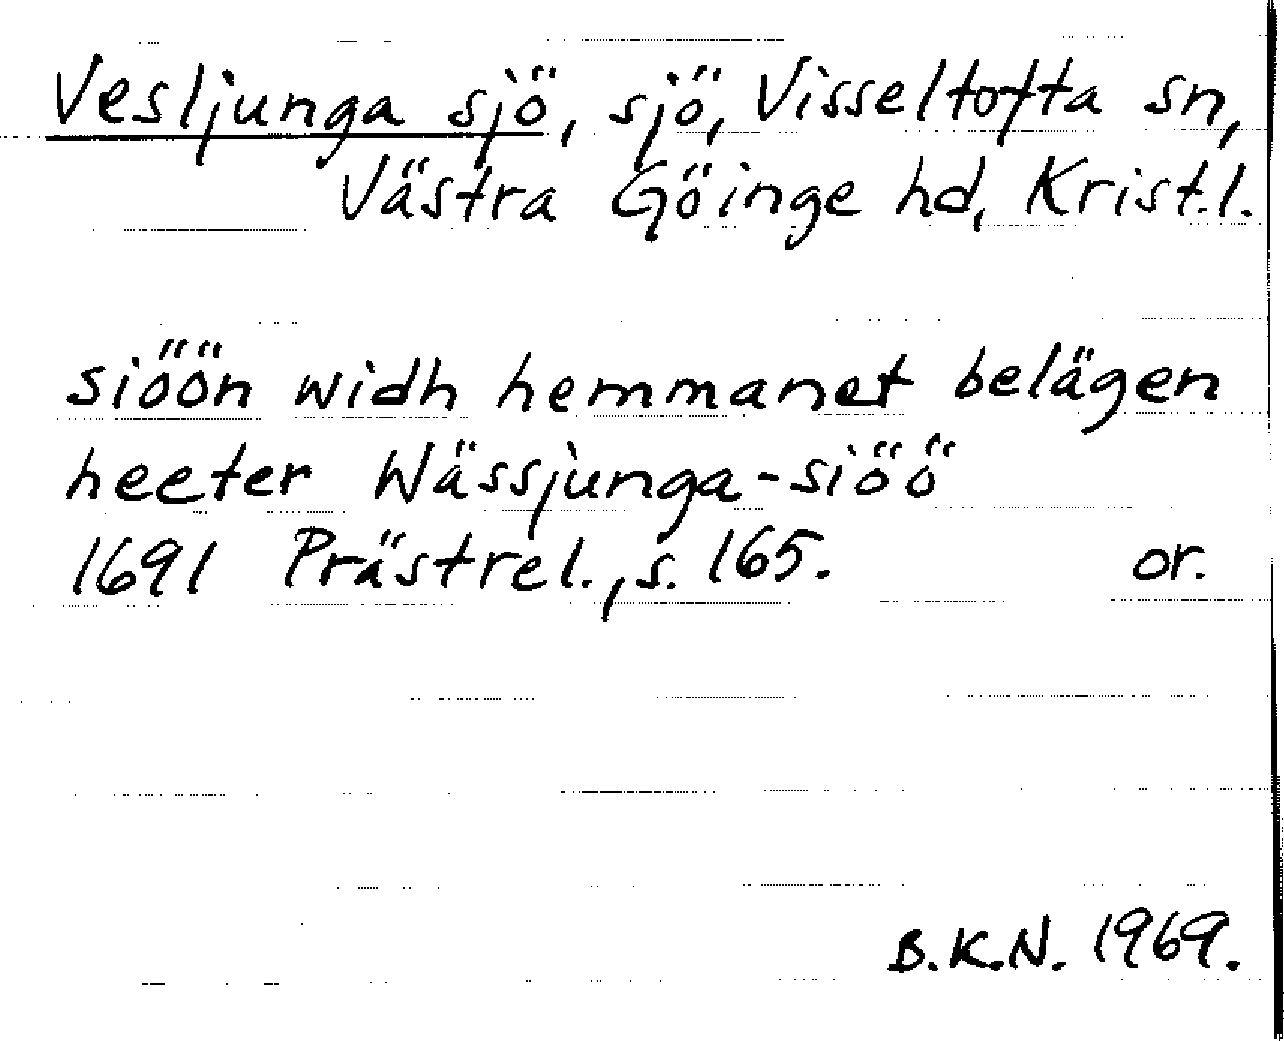 Vesljunga sjö, sjö, Visseltofta sn,
Västra Göinge hd, Krist.l.
siöön widh hemmanet belägen
heeter Wässjunga-siöö
1691 Prästrel., s. 165. or.
B.K.N. 1969.